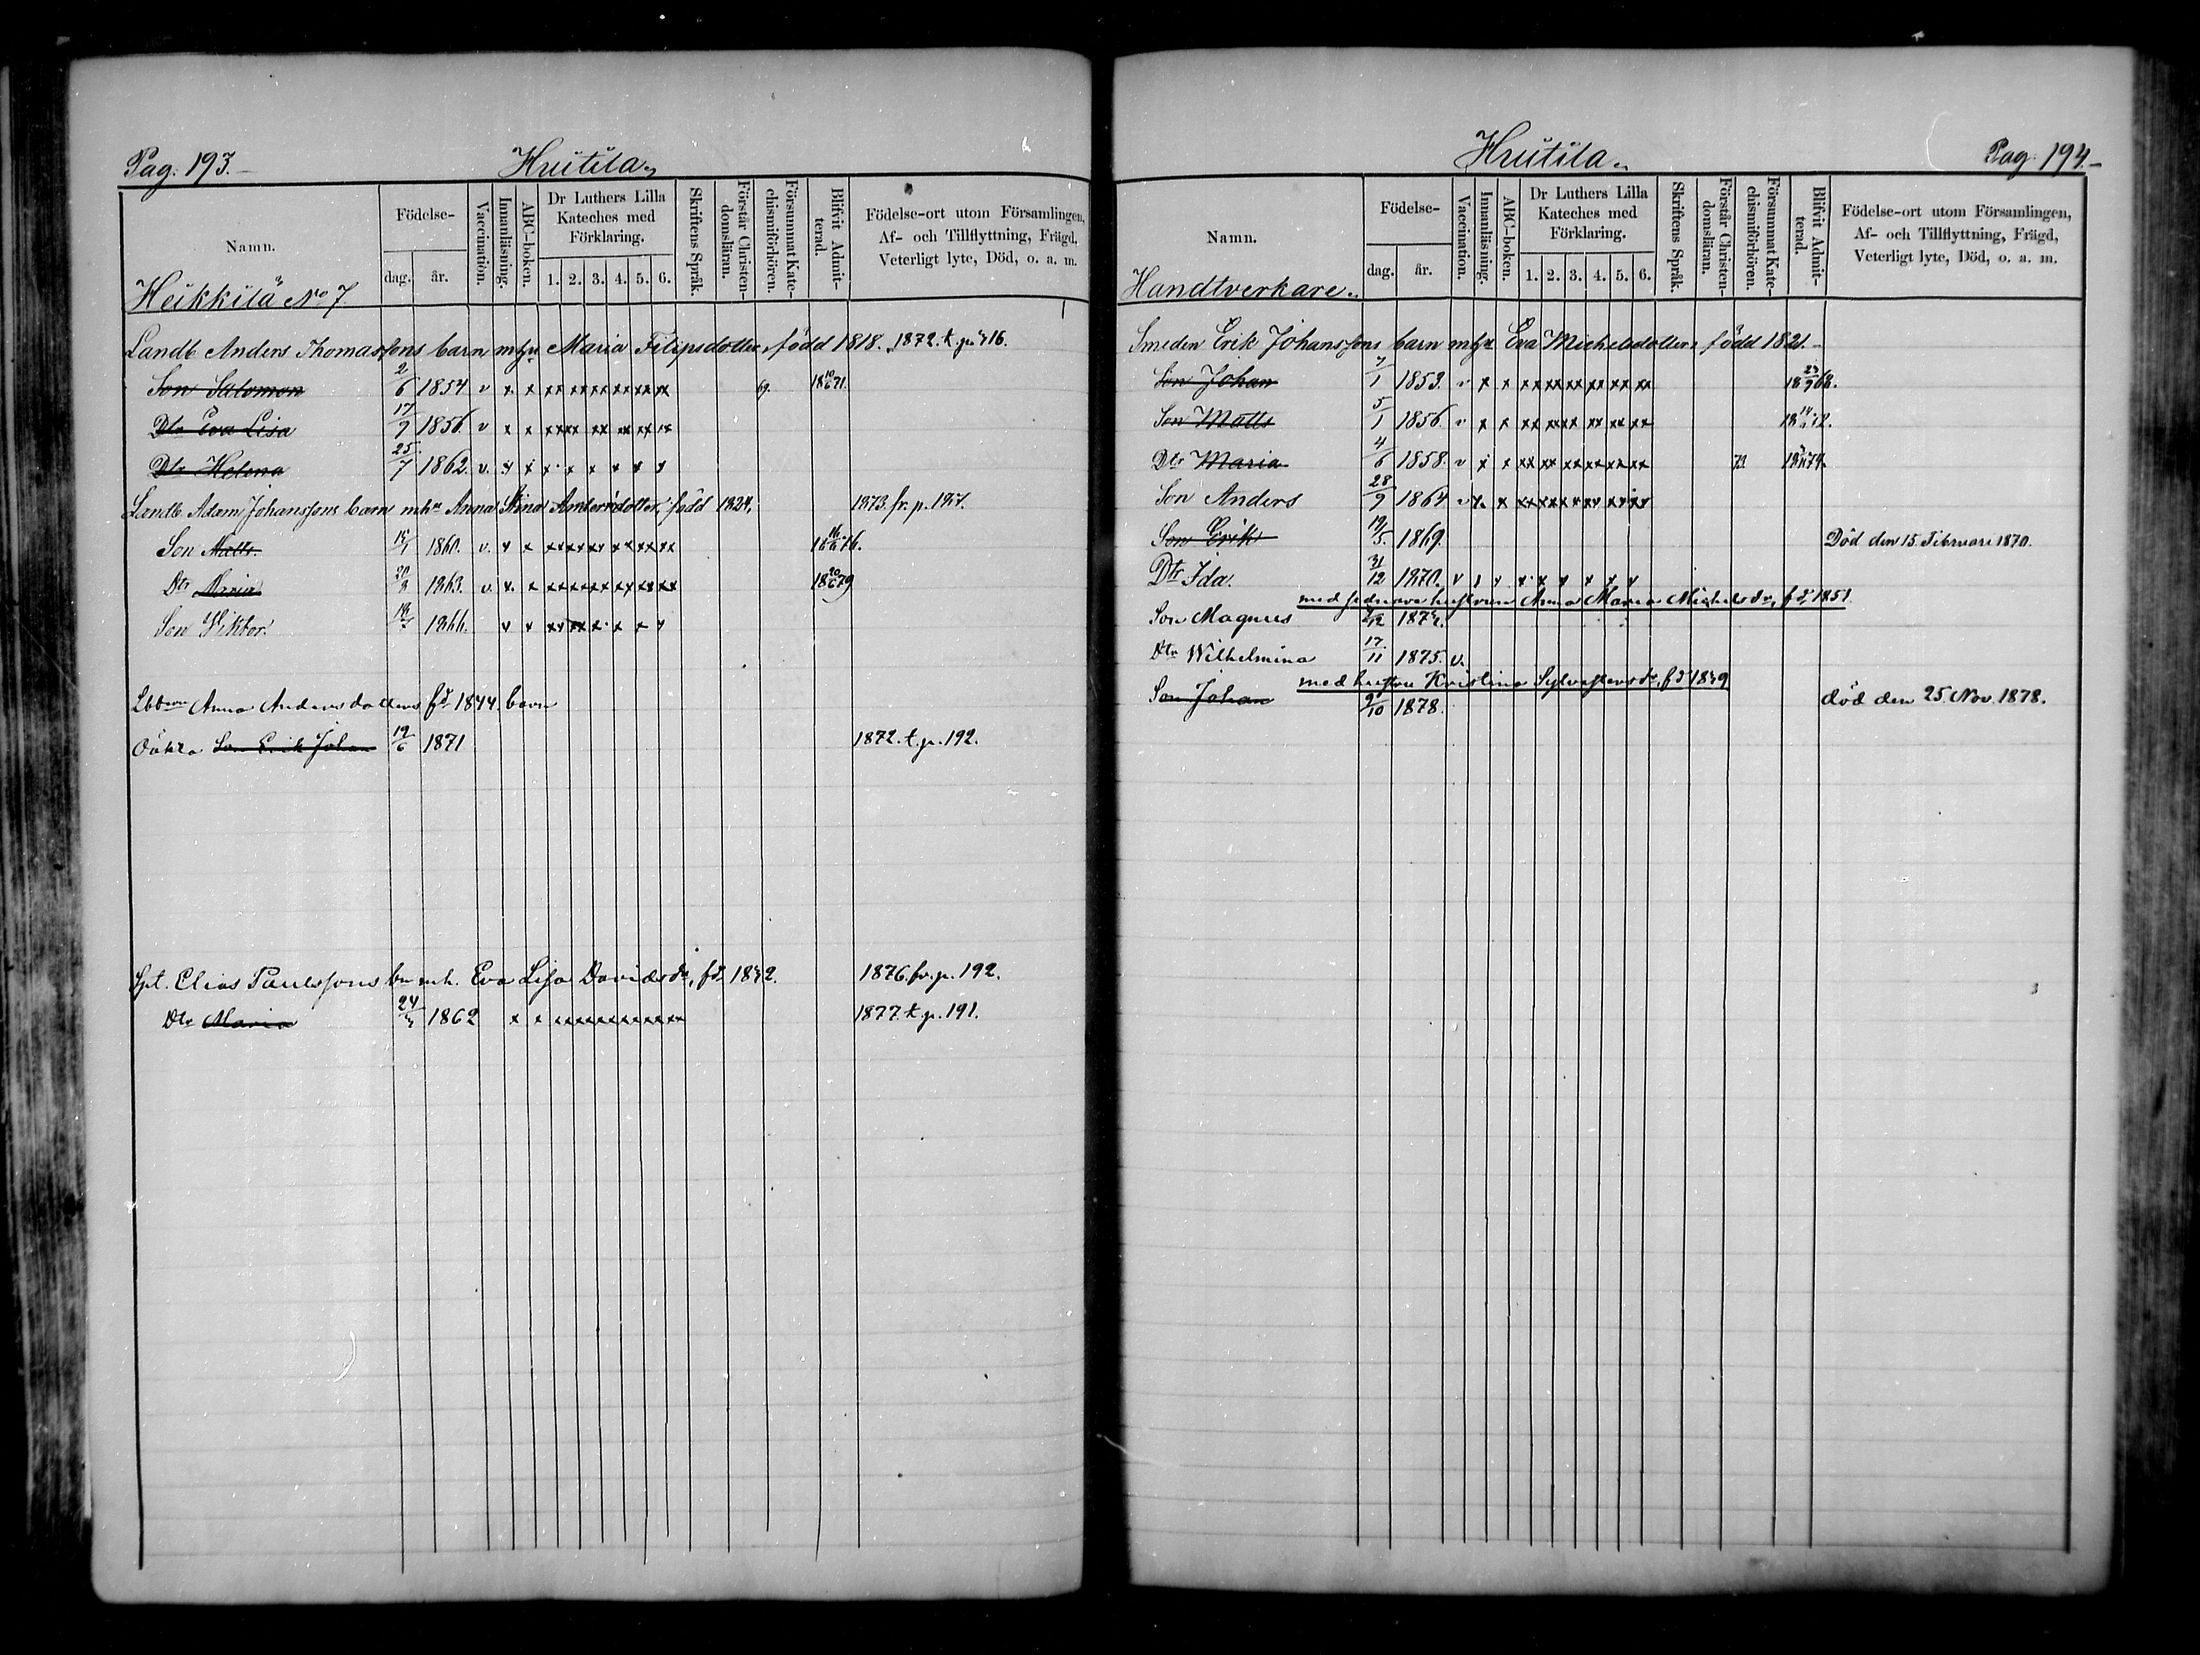 Pag. 193.
Hutila
Namn.
Födelse-
dag.
år.
Vaccination.
Innanläsning.
ABC-boken.
Dr Luthers Lilla
Kateches med
Förklaring.
1. 2. 3. 4. 5. 6.
Skriftens Språk.
Förstår Christen-
domsläran.
Försummat Kate-
chismiförhören.
Blifvit Admit-
terad.
Födelse-ort utom Församlingen,
Af- och Tillflyttning, Frägd,
Veterligt lyte, Död, o. a. m.
Heikkilä No 7
Landb Anders Thomassons barn mhu Maria Filipsdotter, född 1818. 1872. t. p.
Son Salomon 2/6 1854 v x x xx xx xx xx xx xx 69. 18 10/6 71.
Dtr Eva Lisa 17/9 1856. v x x xx xx xx xx xx xx
Dtr Helena 25/7 1862. v. x x x x x x x x
Landb Adam Johanssons barn mhu Anna Stina Andersdotter, född 1824. 1873. fr. p.
Son Matts. 1860. v. x x xx xx xx xx xx xx 76.
Dtr Maria 1863. v. x x xx xx xx xx xx xx 18 20/6 79
Son Viktor. 1866. x x xx xx x x x x
Lbbrn Anna Andersdotters fd 1844. barn
Oäkta Son Erik Johan 19/6 1871 1872. t. p. 192.
Spt. Elias Paulssons bn mh. Eva Lisa Davidsdr, fd. 1832. 1876. fr. p. 192.
Dtr Maria 1862 x x xx xx xx xx xx xx 1877. t. p. 191.
Hutila
Pag. 194.
Namn.
Födelse-
dag.
år.
Vaccination.
Innanläsning.
ABC-boken.
Dr Luthers Lilla
Kateches med
Förklaring.
1. 2. 3. 4. 5. 6.
Skriftens Språk.
Förstår Christen-
domsläran.
Försummat Kate-
chismiförhören.
Blifvit Admit-
terad.
Födelse-ort utom Församlingen,
Af- och Tillflyttning, Frägd,
Veterligt lyte, Död, o. a. m.
Handtverkare.
Smeden Erik Johanssons barn mhu Eva Michelsdotter, född 1821.
Son Johan 7/1 1853. v x x xx xx xx xx xx xx 68.
Son Matts 5/1 1856. v x x xx xx xx xx xx xx
Dtr Maria 4/6 1858. v x x xx xx xx xx xx xx 73. 79.
Son Anders 28/9 1864 v x. x xx xx xx xx xx xx
Son Erik 19/5 1869. Död den 15 Februari 1870.
Dtr Ida. 31/12 1870. v x x x x x x x x
med sednare hustrun Anna Maria Michelsdr, fd. 1851.
Son Magnus
Dtr Wilhelmina 17/11 1875. v.
med hustru Kristina Sylvestersdr, fd 1839
Son Johan 9/10 1878. död den 25. Nov. 1878.